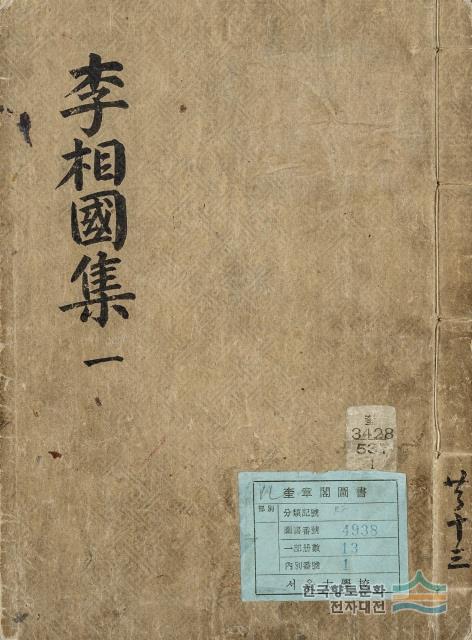 李相國集 一
奎
3428
53
1
奎章閣圖書
部別
分類記號
圖書番號 4938
一部冊數 13
內別番號 1
서울大學校
共十三
한국향토문화
전자대전